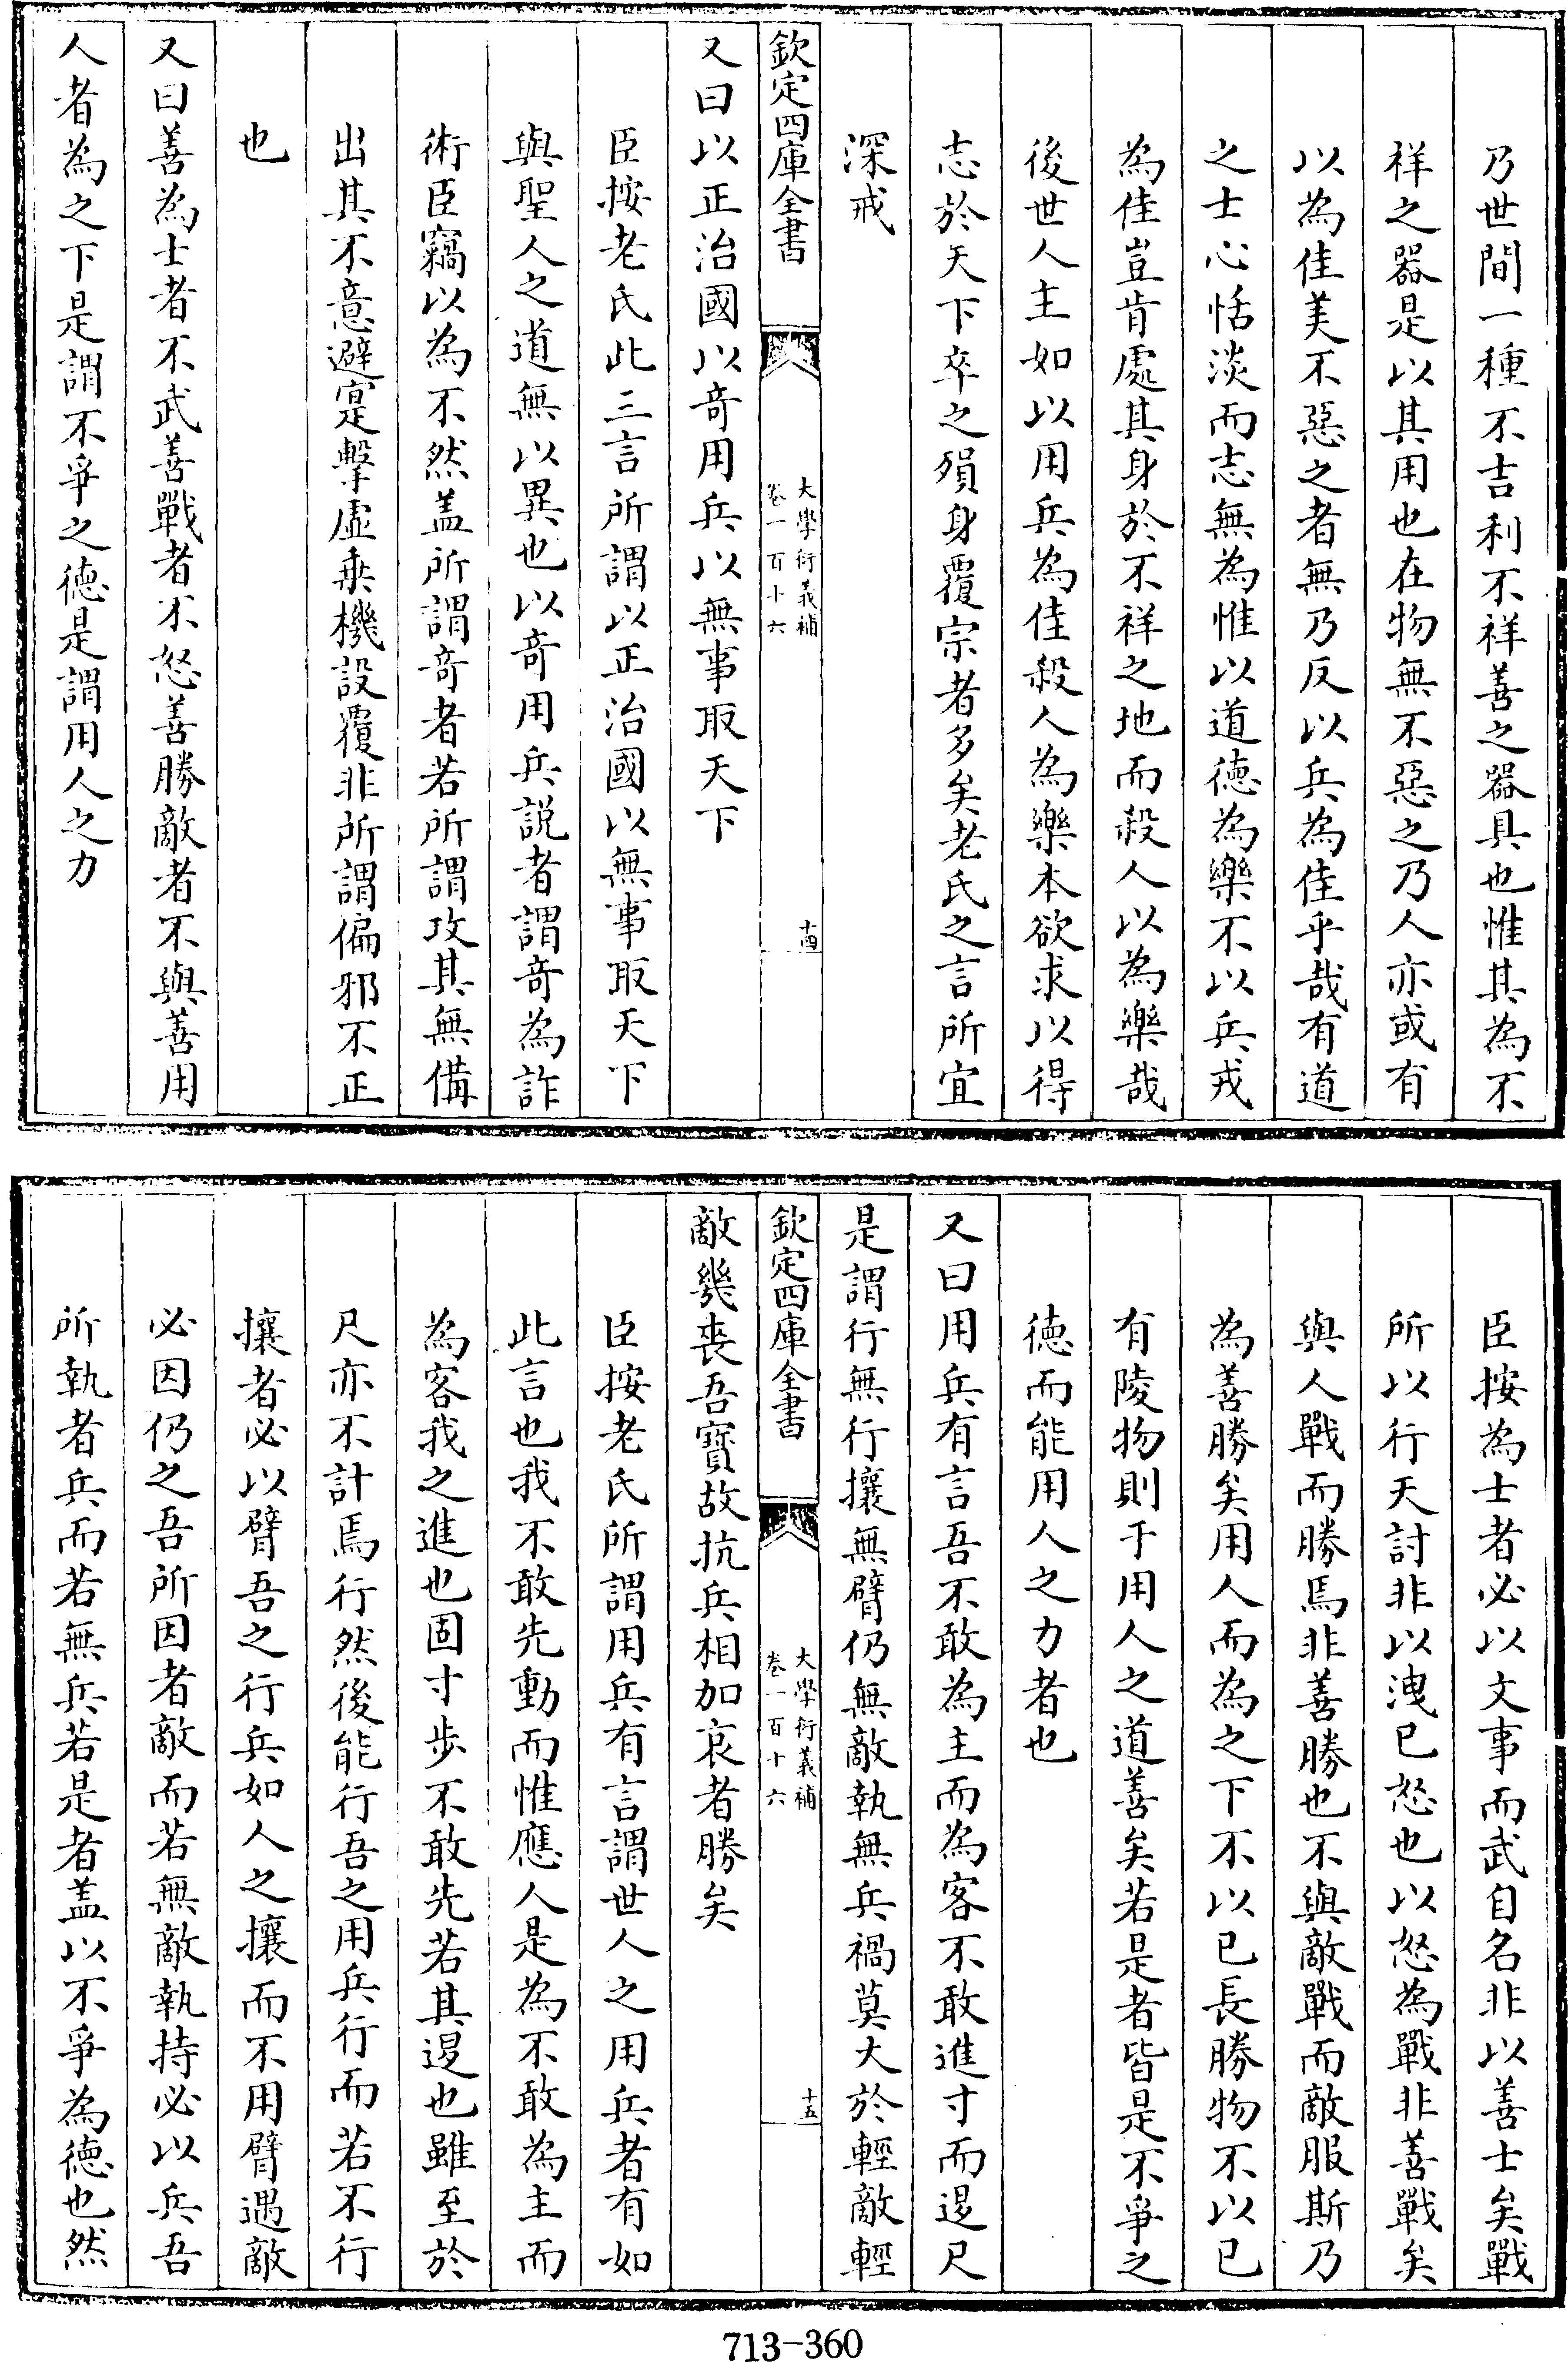 乃世間一種不吉利不祥善之器具也惟其為不
祥之器是以其用也在物無不惡之乃人亦或有
以為佳美不惡之者無乃反以兵為佳乎哉有道
之士心恬淡而志無為惟以道德為樂不以兵戎
為佳豈肯處其身於不祥之地而殺人以為樂哉
後世人主如以用兵為佳殺人為樂本欲求以得
志於天下卒之殞身覆宗者多矣老氏之言所宜
深戒
欽定四庫全書
大學衍義補
卷一百十六
十四
又曰以正治國以竒用兵以無事取天下
臣按老氏此三言所謂以正治國以無事取天下
與聖人之道無以異也以竒用兵説者謂竒為詐
術臣竊以為不然盖所謂竒者若所謂攻其無備
出其不意避寔擊虛乗機設覆非所謂偏邪不正
也
又曰善為士者不武善戰者不怒善勝敵者不與善用
人者為之下是謂不爭之德是謂用人之力
臣按為士者必以文事而武自名非以善士矣戰
所以行天討非以洩已怒也以怒為戰非善戰矣
與人戰而勝焉非善勝也不與敵戰而敵服斯乃
為善勝矣用人而為之下不以已長勝物不以已
有陵物則于用人之道善矣若是者皆是不爭之
德而能用人之力者也
又曰用兵有言吾不敢為主而為客不敢進寸而退尺
是謂行無行攘無臂仍無敵執無兵禍莫大於輕敵輕
欽定四庫全書
大學衍義補
卷一百十六
十五
敵幾喪吾寶故抗兵相加哀者勝矣
臣按老氏所謂用兵有言謂世人之用兵者有如
此言也我不敢先動而惟應人是為不敢為主而
為客我之進也固寸步不敢先若其退也雖至於
尺亦不計焉行然後能行吾之用兵行而若不行
攘者必以臂吾之行兵如人之攘而不用臂遇敵
必因仍之吾所因者敵而若無敵執持必以兵吾
所執者兵而若無兵若是者盖以不爭為德也然
713-360